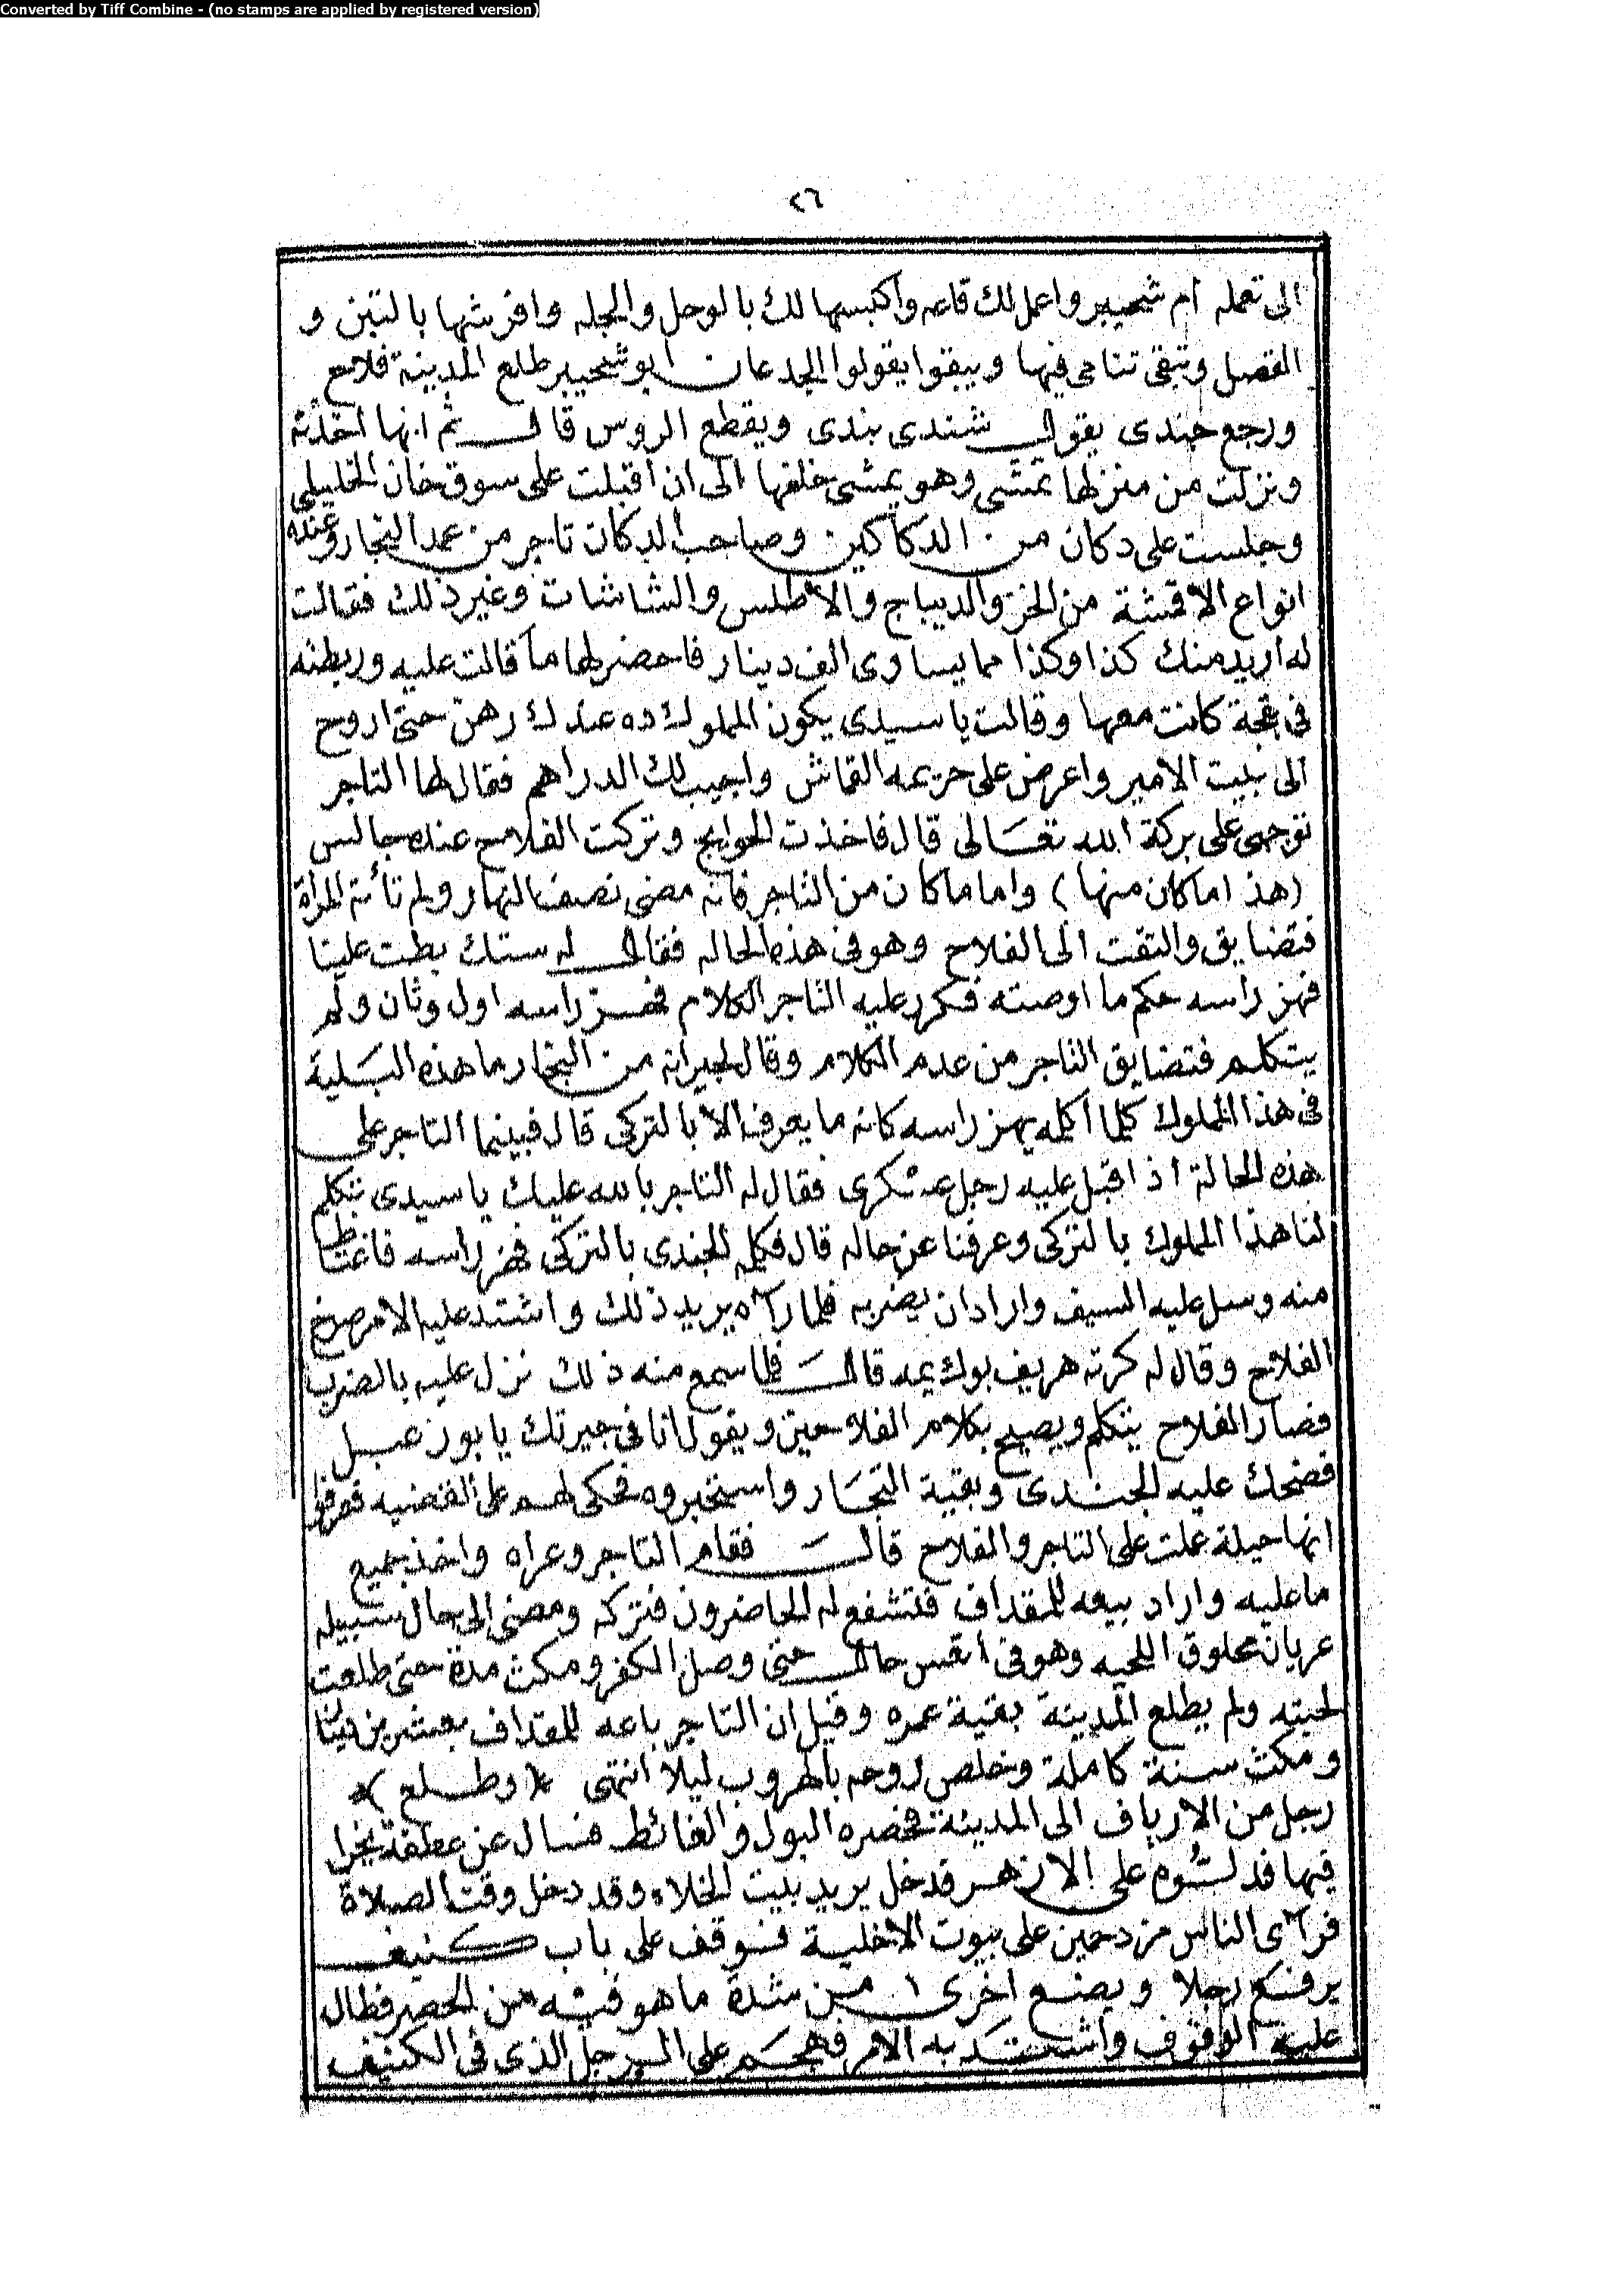 Converted by Tiff Combine - (no stamps are applied by registered version)
٢٦
الى تعمله ام شحيبر واعمل لك قاعه واكبسها لك بالوحل والجله وافرشها بالتبن و
القصل وتبقى تنامى فيها ويبقوا يقولوا الجدعان ابو شحيبر طلع المدينة فلاح
ورجع جندى يقول شندى بندى ويقطع الروس قال ثم انها اخذته
ونزلت من منزلها تمشى وهو يمشى خلفها الى ان اقبلت على سوق خان الخليلى
وجلست على دكان من الدكاكين وصاحب الدكان تاجر من عمد التجار وعنده
انواع الاقمشة من الخز والديباج والاطلس والشاشات وغير ذلك فقالت
له اريد منك كذا وكذا مما يساوى الف دينار فاحضر لها ما قالت عليه وربطته
فى بقجة كانت معها وقالت يا سيدى يكون المملوك ده عندك رهن حتى اروح
الى بيت الامير واعرض على حريمه القماش واجيب لك الدراهم فقال لها التاجر
توجهى على بركة الله تعالى قال فاخذت الحوايج وتركت الفلاح عنده جالس
(هذا ما كان منها) واما ما كان من التاجر فانه مضى نصف النهار ولم تأته المرأة
فتضايق والتفت الى الفلاح وهو فى هذه الحاله فقال له ستك بطت علينا
فهز راسه حكم ما اوصته فكرر عليه التاجر الكلام فهز راسه اول وثان ولم
يتكلم فتضايق التاجر من عدم الكلام وقال لجيرانه من التجار ما هذه البلية
فى هذا المملوك كلما اكلمه يهز راسه كانه ما يعرف الا بالتركى قال فبينما التاجر على
هذه الحالة اذ اقبل عليه رجل عسكرى فقال له التاجر بالله عليك يا سيدى تتكلم
لنا هذا المملوك بالتركى وعرفنا عن حاله قال فكلمه الجندى بالتركى فهز راسه فاغتاظ
منه وسل عليه السيف واراد ان يضربه فلما رآه يريد ذلك واشتد عليه الامر صرخ
الفلاح وقال له كرته هريف بوك يمه قال فلما سمع منه ذلك نزل عليه بالضرب
فصار الفلاح يتكلم ويصيح بكلام الفلاحين ويقول انا فى جيرتك يا بوزعبل
فضحك عليه الجندى وبقية التجار واستخبروه فحكى لهم على القضيه فعرفوا
انها حيلة عملت على التاجر والفلاح قال فقام التاجر وعراه واخذ جميع
ما عليه واراد بيعه للمقداف فتشفع له الحاضرون فتركه ومضى الى حال سبيله
عريان محلوق اللحيه وهو فى اتعس حال حتى وصل الكفر ومكث مدة حتى طلعت
لحيته ولم يطلع المدينة بقية عمره وقيل ان التاجر باعه للمقداف بعشرين دينارا
ومكث سنة كاملة وخلص روحه بالهروب ليلا انتهى * (وطلع) *
رجل من الارياف الى المدينة فحضره البول والغائط فسال عن عطفة يخرا
فيها فدلوه على الازهر فدخل يريد بيت الخلاء وقد دخل وقت الصلاة
فرآى الناس مزدحمين على بيوت الاخلية فوقف على باب كنيف
يرفع رجلا ويضع اخرى من شدة ما هو فيه من الحصر فطال
عليه الوقوف واشتد به الامر فهجم على الرجل الذى فى الكنيف